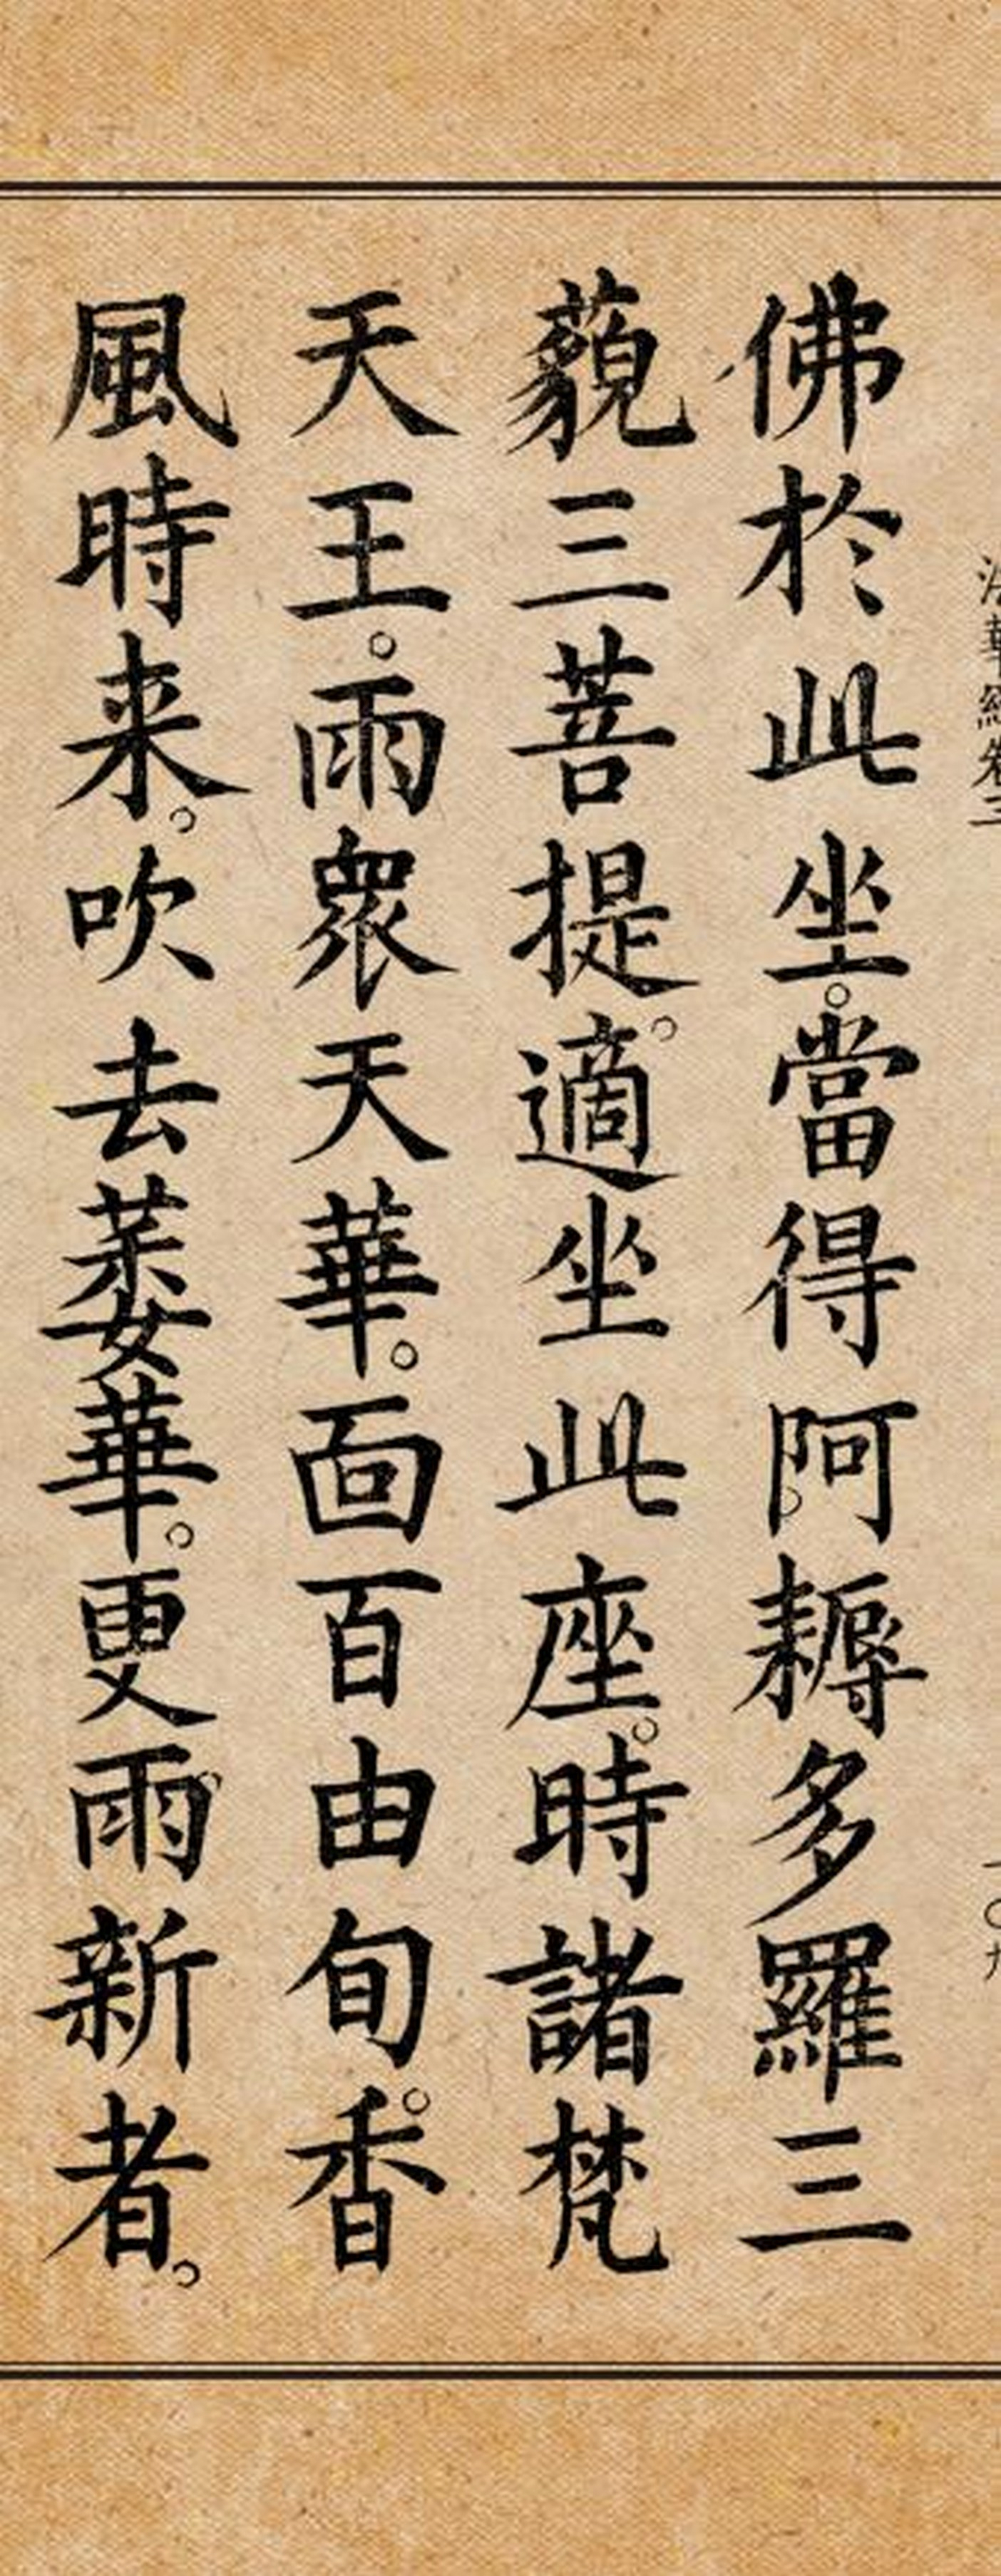 法華經卷三
一〇九
佛於此坐。當得阿耨多羅三
藐三菩提。適坐此座。時諸梵
天王。雨眾天華。面百由旬。香
風時来。吹去萎華。更雨新者。